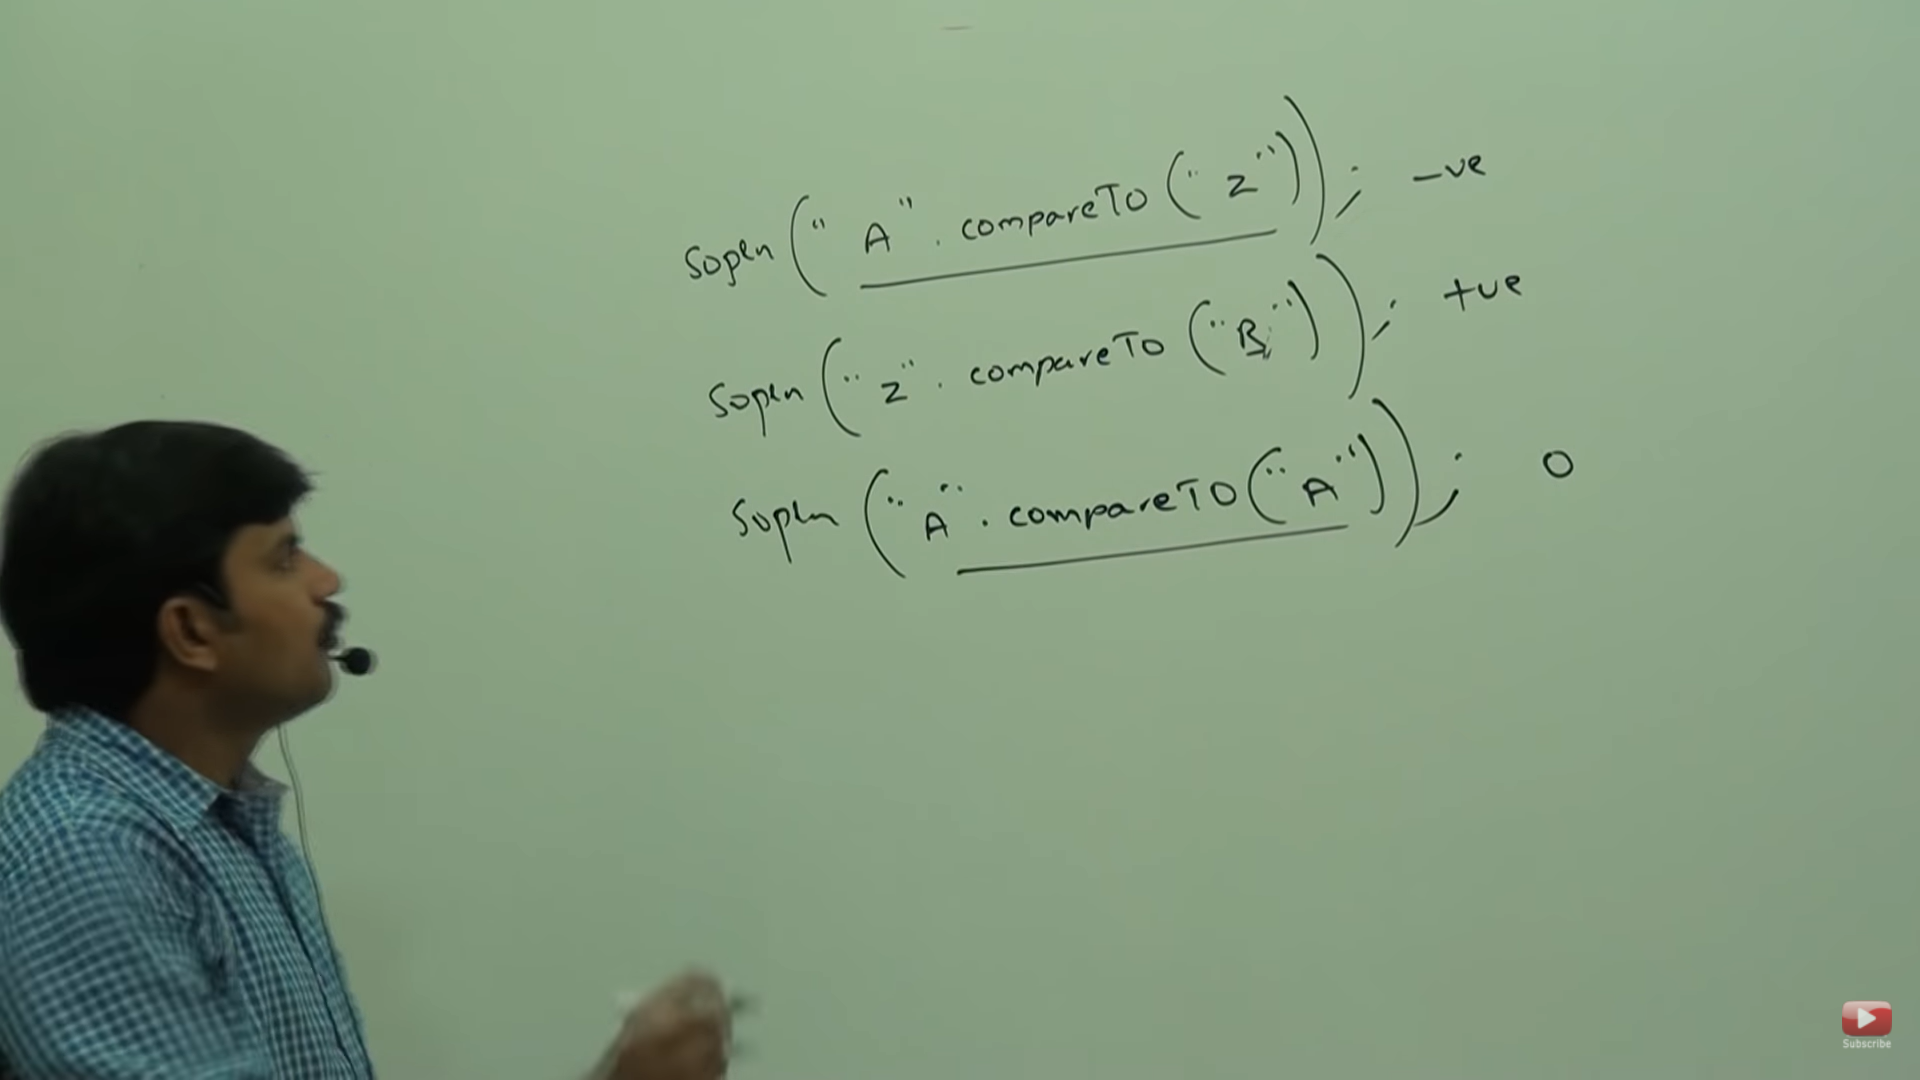 Sopln("A".compareTo("Z")); -ve
Sopln("Z".compareTo("B")); +ve
Sopln("A".compareTo("A")); 0
Subscribe